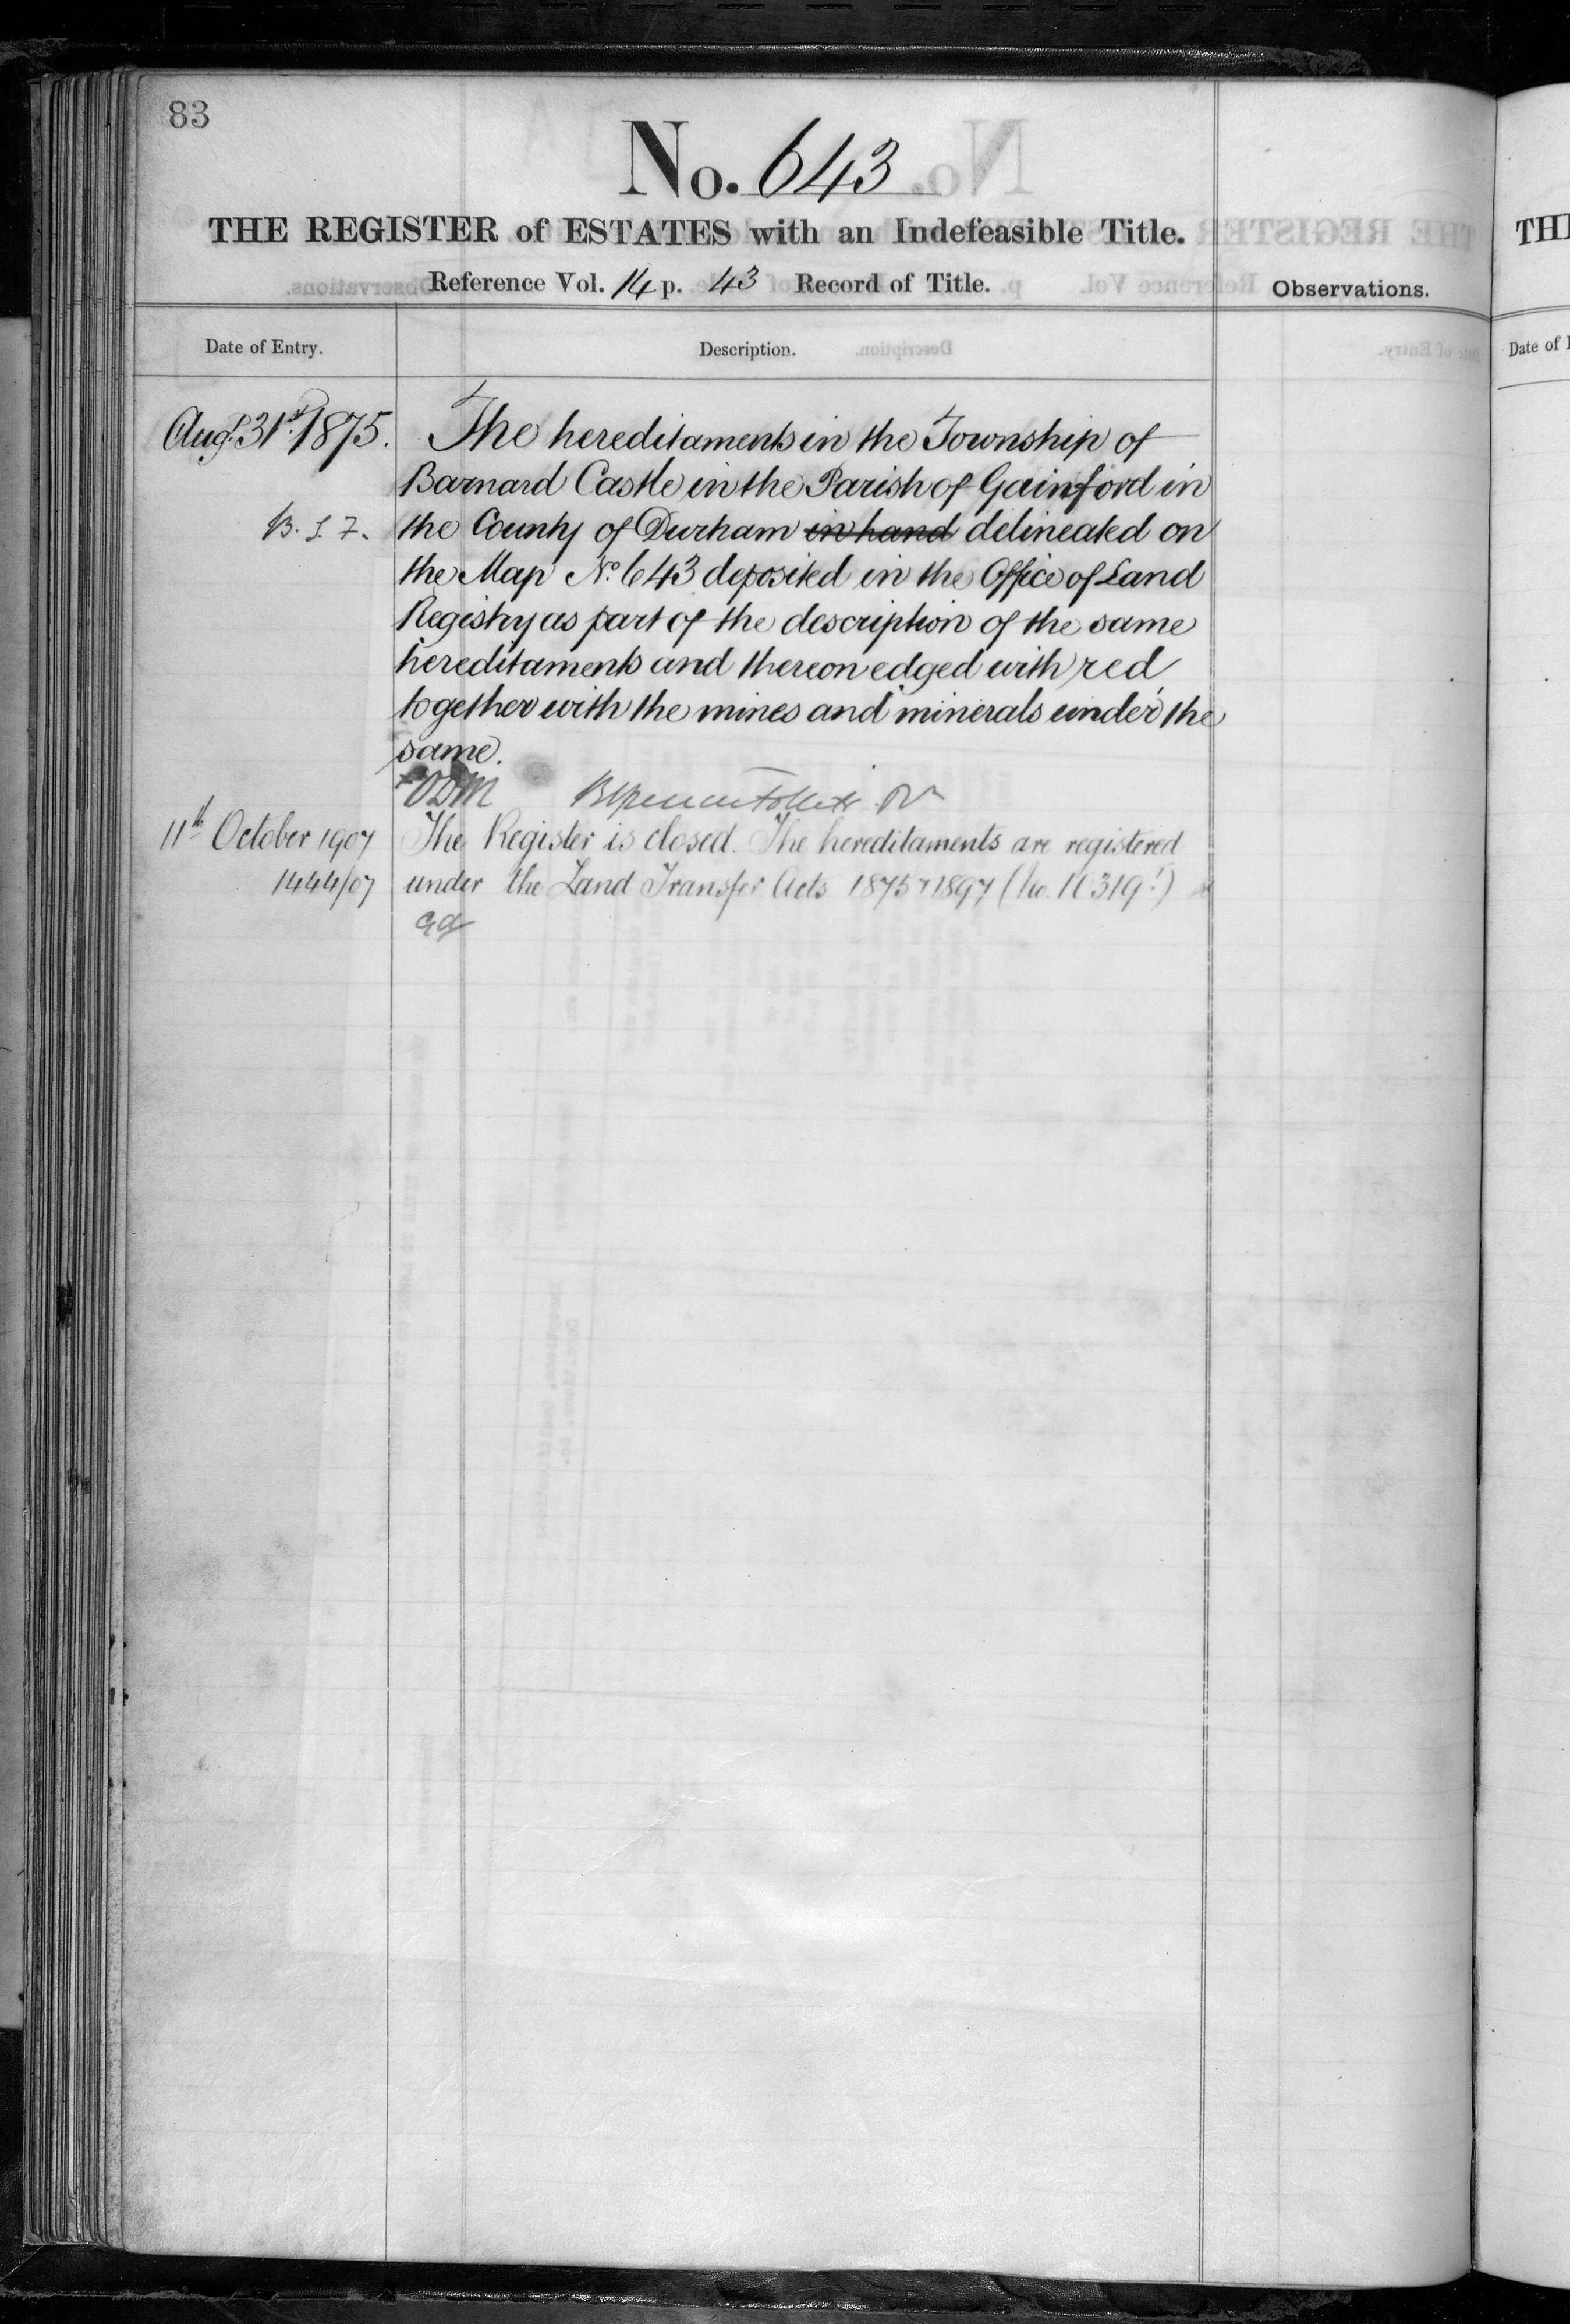 83
No. 643
THE REGISTER of ESTATES with an Indefeasible Title.
Reference Vol. 14 p. 43 Record of Title.
Observations.
Date of Entry.
Description.
Augt. 31st. 1875.
The hereditaments in the Township of
Barnard Castle in the Parish of Gainford in
the County of Durham in hand delineated on
the Map No. 643 deposited in the Office of Land
Registry as part of the description of the same
hereditaments and thereon edged with red
together with the mines and minerals under the
same.
11th October 1907
1444/07
The Register is closed. The hereditaments are registered
under the Land Transfer Acts 1875 & 1897 (No. 110319!)
THE
Date of